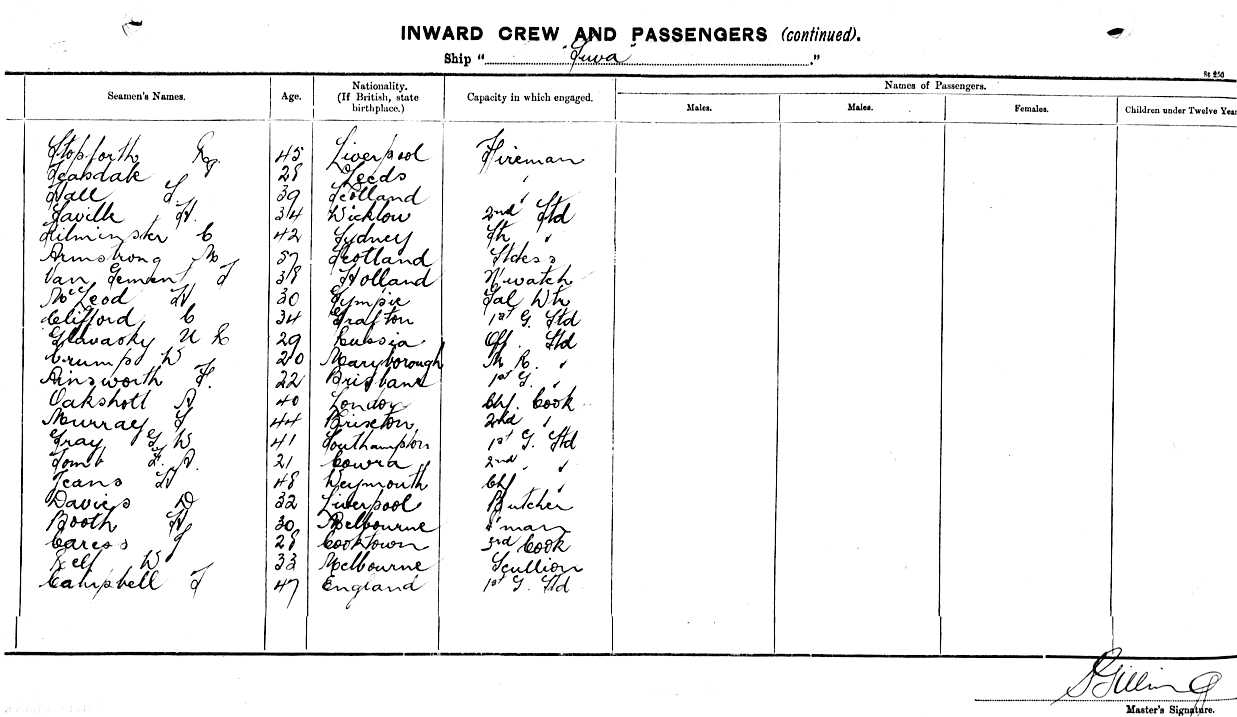 INWARD CREW AND PASSENGERS (continued).
Ship " Suva ."
St 250
Seamen's Names. Age. Nationality. (If British, state birthplace.) Capacity in which engaged. Names of Passengers.
Males. Males. Females. Children under Twelve Year
Stopforth 45 Liverpool Fireman
Teasdale 28 Leeds "
Hall 39 Scotland "
Saville H. 34 Wicklow 2nd Std
Kilminster C 42 Sydney "
Armstrong M 37 Scotland Stdess
Van Gement 38 Holland N'watch
McLeod H 30 Gympie Sal Wtr
Clifford C 34 Grafton 1st G. Std
29 Russia Off. Std
Crump W 20 Maryborough M R. "
Ainsworth F. 22 Brisbane 1st G. "
Oakshott A 40 London Chf. Cook
Murray 44 Brixton 2nd "
Gray G W 41 Southampton 1st G. Std
Tomb A. 21 Cowra 2nd " "
Jeans H 48 Weymouth Chf "
Davies D 32 Liverpool Butcher
Booth H 30 Melbourne S'man
Caress 28 Cooktown 3rd Cook
Kelf W 33 Melbourne Scullion
Campbell J 47 England 1st G. Std
Master's Signature.